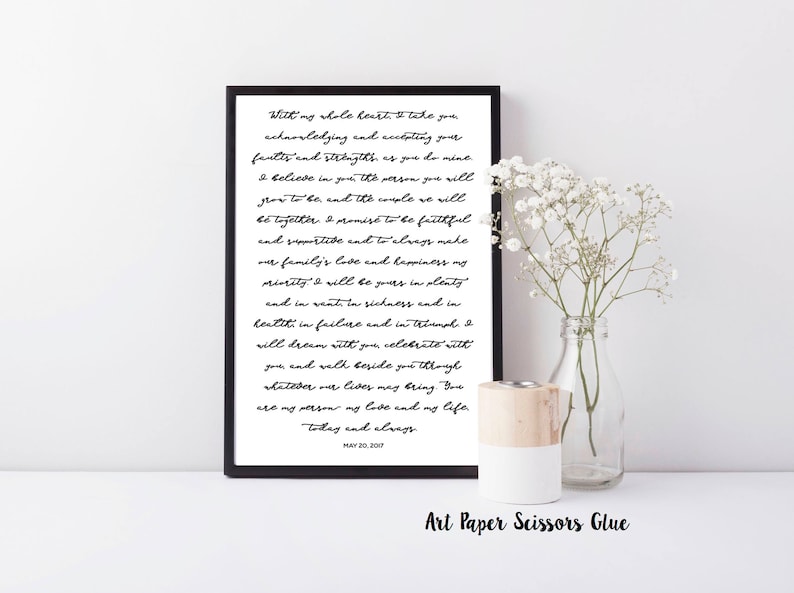 With my whole heart, I take you,
acknowledging and accepting your
faults and strengths, as you do mine.
I believe in you, the person you will
grow to be, and the couple we will
be together. I promise to be faithful
and supportive and to always make
our family's love and happiness my
priority. I will be yours in plenty
and in want, in sickness and in
health, in failure and in triumph. I
will dream with you, celebrate with
you, and walk beside you through
whatever our lives may bring. You
are my person- my love and my life,
today and always.
MAY 20, 2017
Art Paper Scissors Glue